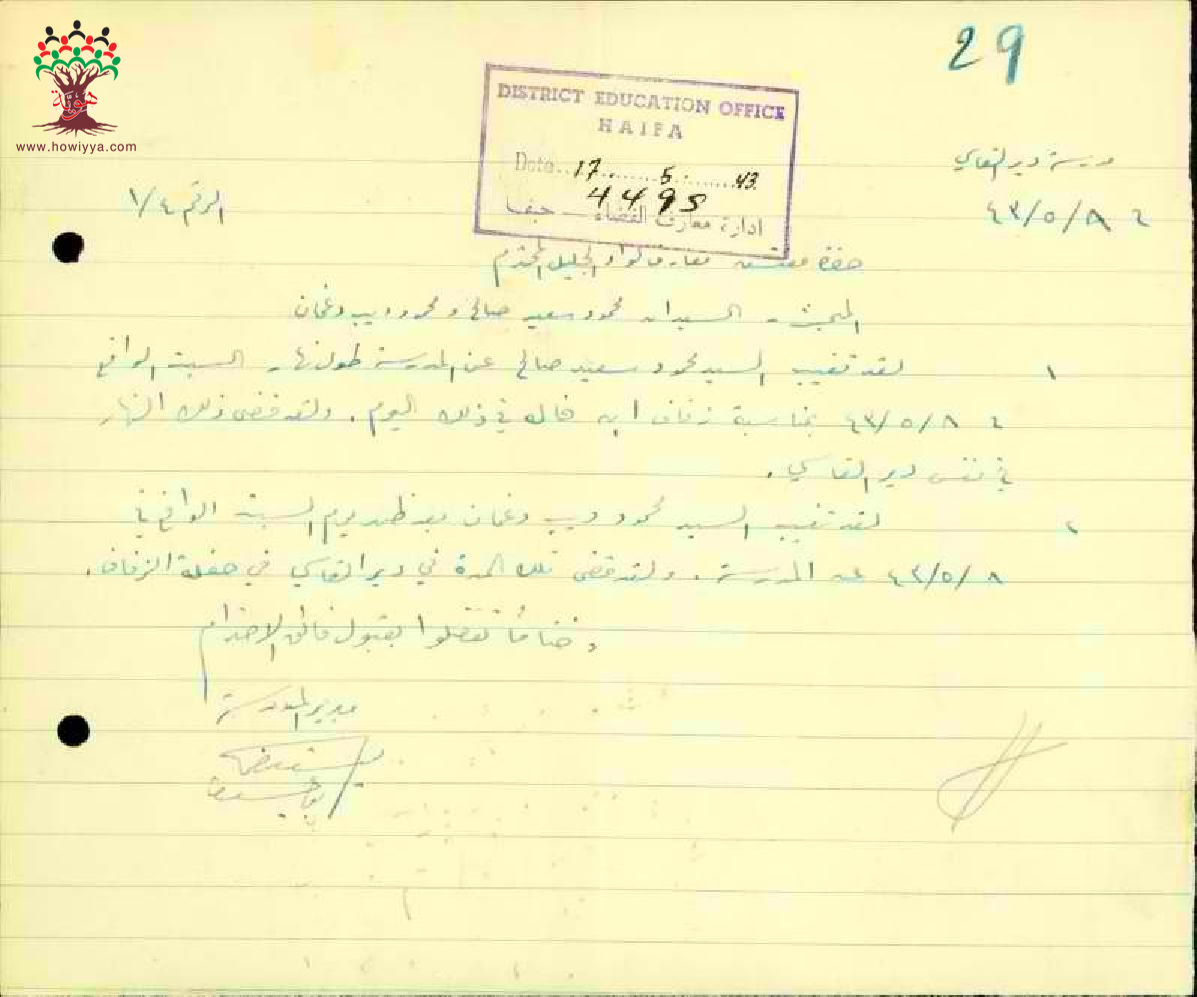 29
هوية
www.howiyya.com
DISTRICT EDUCATION OFFICE
HAIFA
Date 17 5 43
4495
ادارة معارف القضاء — حيفا
مدرسة دير القاسي
٤٣/٥/٨
الرقم ١/٤
حضرة مفتش معارف لواء الجليل المحترم
المبحث - السيدان محمود سعيد صالح و محمود ديب دغمان
١ لقد تغيب السيد محمود سعيد صالح عن المدرسة طول نهار السبت الواقع
٤٣/٥/٨ بمناسبة زفاف ابن خاله في ذلك اليوم. ولقد قضى ذلك النهار
في نفس دير القاسي.
٢ لقد تغيب السيد محمود ديب دغمان بعد ظهر يوم السبت الواقع في
٤٣/٥/٨ عن المدرسة. ولقد قضى تلك المدة في دير القاسي في حفلة الزفاف.
وختاماً تفضلوا بقبول فائق الاحترام
مدير المدرسة